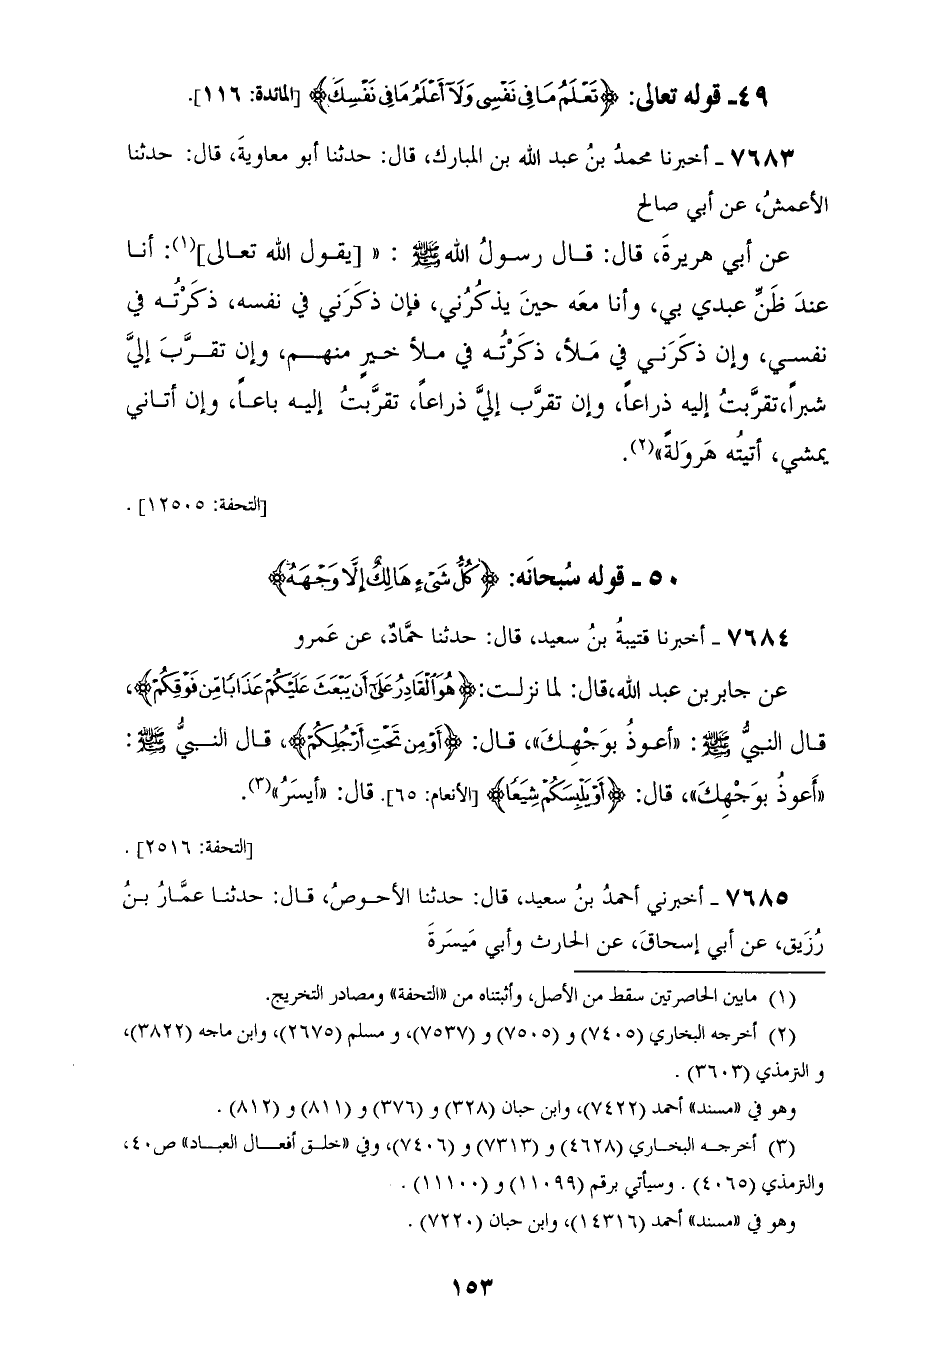 ٤٩ـ قوله تعالى: ﴿تَعْلَمُ مَا فِى نَفْسِى وَلَآ أَعْلَمُ مَا فِى نَفْسِكَ﴾ [المائدة: ١١٦].
٧٦٨٣ ـ أخبرنا محمدُ بنُ عبد الله بن المبارك، قال: حدثنا أبو معاويةَ، قال: حدثنا
الأعمشُ، عن أبي صالح
عن أبي هريرةَ، قال: قال رسولُ الله ﷺ : « [يقول الله تعالى](١): أنا
عندَ ظَنِّ عبدي بي، وأنا معَه حينَ يذكُرُني، فإن ذكَرَني في نفسه، ذكَرْتُه في
نفسي، وإن ذكَرَني في مَلأ، ذكَرْتُه في ملأ خيرٍ منهم، وإن تقرَّبَ إليَّ
شبراً،تقرَّبتُ إليه ذراعاً، وإن تقرَّب إليَّ ذراعاً، تقرَّبتُ إليه باعاً، وإن أتاني
يمشي، أتيتُه هَرولَةً»(٢).
[التحفة: ١٢٥٠٥] .
٥٠ ـ قوله سُبحانَه: ﴿كُلُّ شَىْءٍ هَالِكٌ إِلَّا وَجْهَهُ﴾
٧٦٨٤ ـ أخبرنا قتيبةُ بنُ سعيد، قال: حدثنا حمَّادٌ، عن عَمرو
عن جابر بن عبد الله،قال: لما نزلت:﴿هُوَ ٱلْقَادِرُ عَلَىٰٓ أَن يَبْعَثَ عَلَيْكُمْ عَذَابًا مِّن فَوْقِكُمْ﴾،
قال النبيُّ ﷺ: «أعوذُ بوَجْهِكَ»، قال: ﴿أَوْ مِن تَحْتِ أَرْجُلِكُمْ﴾، قال النبيُّ ﷺ:
«أَعوذُ بوَجْهِكَ»، قال: ﴿أَوْ يَلْبِسَكُمْ شِيَعًا﴾ [الأنعام: ٦٥]. قال: «أيسَرُ»(٣).
[التحفة: ٢٥١٦] .
٧٦٨٥ ـ أخبرني أحمدُ بنُ سعيد، قال: حدثنا الأحوصُ، قال: حدثنا عمَّارُ بنُ
رُزَيق، عن أبي إسحاقَ، عن الحارث وأبي مَيسَرةَ
(١) مابين الحاصرتين سقط من الأصل، وأثبتناه من «التحفة» ومصادر التخريج.
(٢) أخرجه البخاري (٧٤٠٥) و (٧٥٠٥) و (٧٥٣٧)، و مسلم (٢٦٧٥)، وابن ماجه (٣٨٢٢)،
و الترمذي (٣٦٠٣) .
وهو في «مسند» أحمد (٧٤٢٢)، وابن حبان (٣٢٨) و (٣٧٦) و (٨١١) و (٨١٢) .
(٣) أخرجه البخاري (٤٦٢٨) و (٧٣١٣) و (٧٤٠٦)، وفي «خلق أفعال العباد» ص٤٠،
والترمذي (٤٠٦٥) . وسيأتي برقم (١١٠٩٩) و (١١١٠٠) .
وهو في «مسند» أحمد (١٤٣١٦)، وابن حبان (٧٢٢٠) .
١٥٣